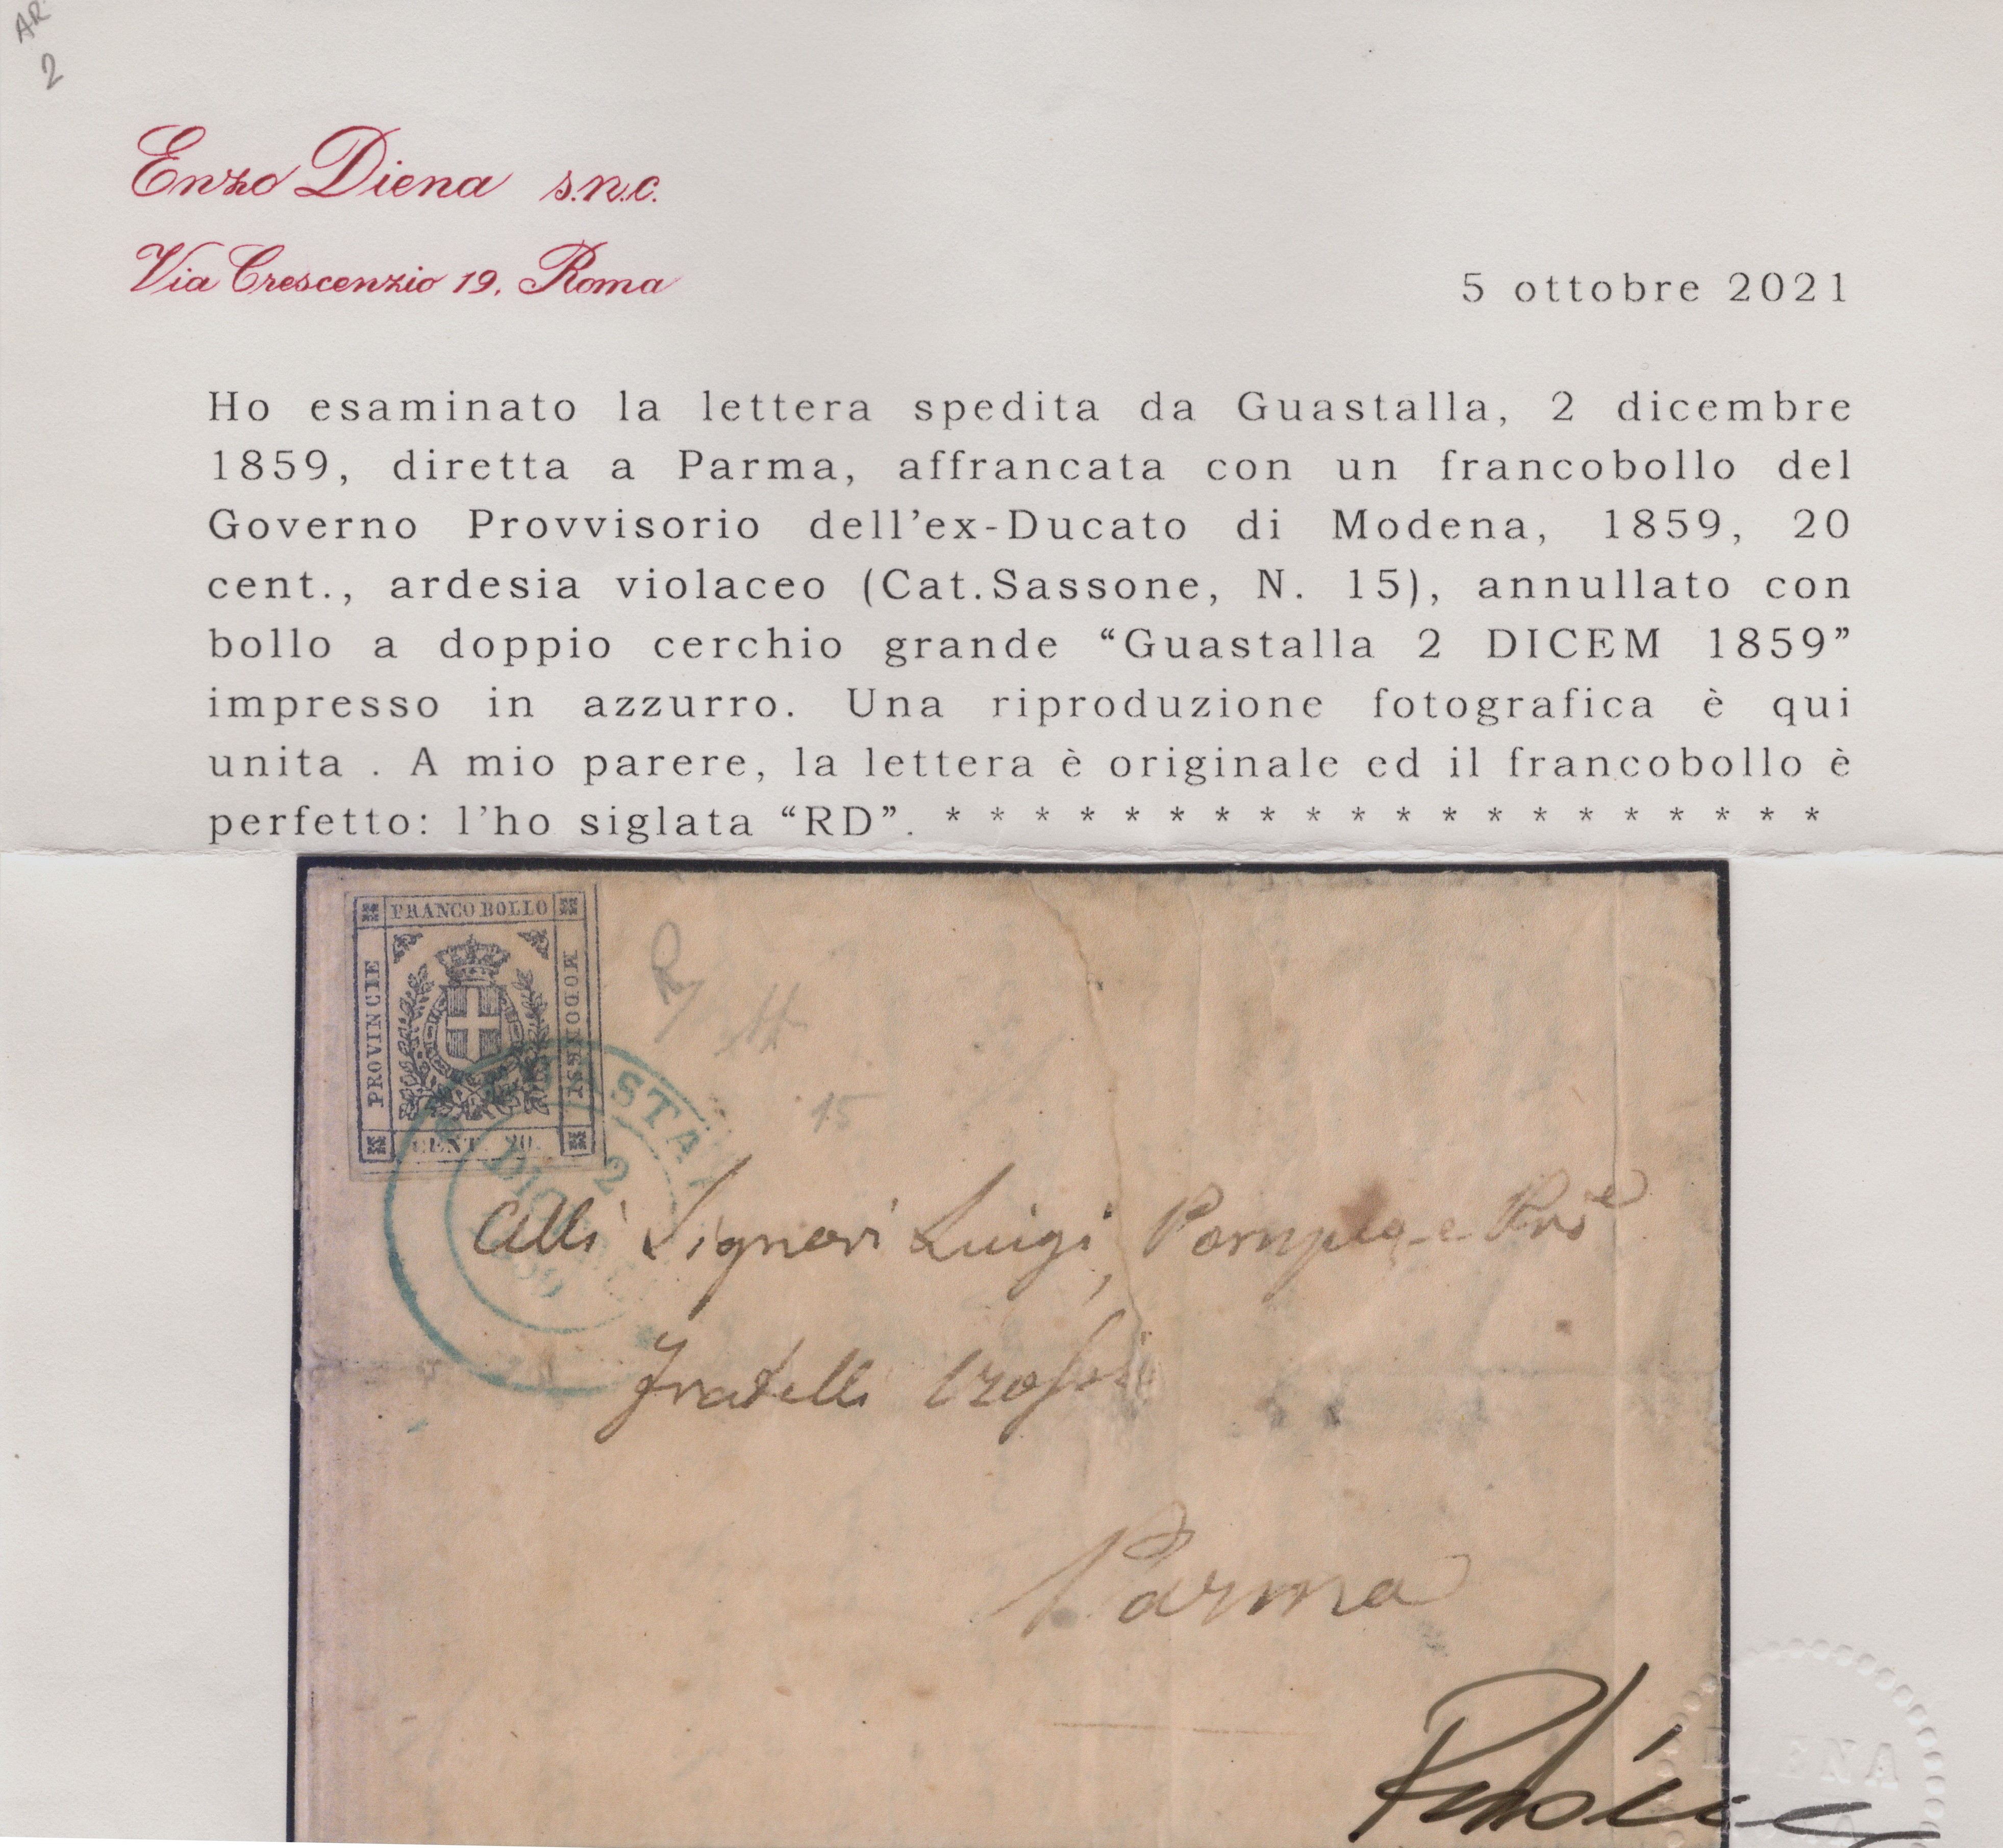 AR
2
Enzo Diena s.n.c.
Via Crescenzio 19, Roma
5 ottobre 2021
Ho esaminato la lettera spedita da Guastalla, 2 dicembre
1859, diretta a Parma, affrancata con un francobollo del
Governo Provvisorio dell’ex-Ducato di Modena, 1859, 20
cent., ardesia violaceo (Cat.Sassone, N. 15), annullato con
bollo a doppio cerchio grande “Guastalla 2 DICEM 1859”
impresso in azzurro. Una riproduzione fotografica è qui
unita . A mio parere, la lettera è originale ed il francobollo è
perfetto: l’ho siglata “RD”. * * * * * * * * * * * * * * * * * * * *
FRANCO BOLLO
PROVINCIE
MODONESI
CENT. 20.
15
2
Alli Signori Luigi, Pompeo e
Fratelli
Parma
DIENA